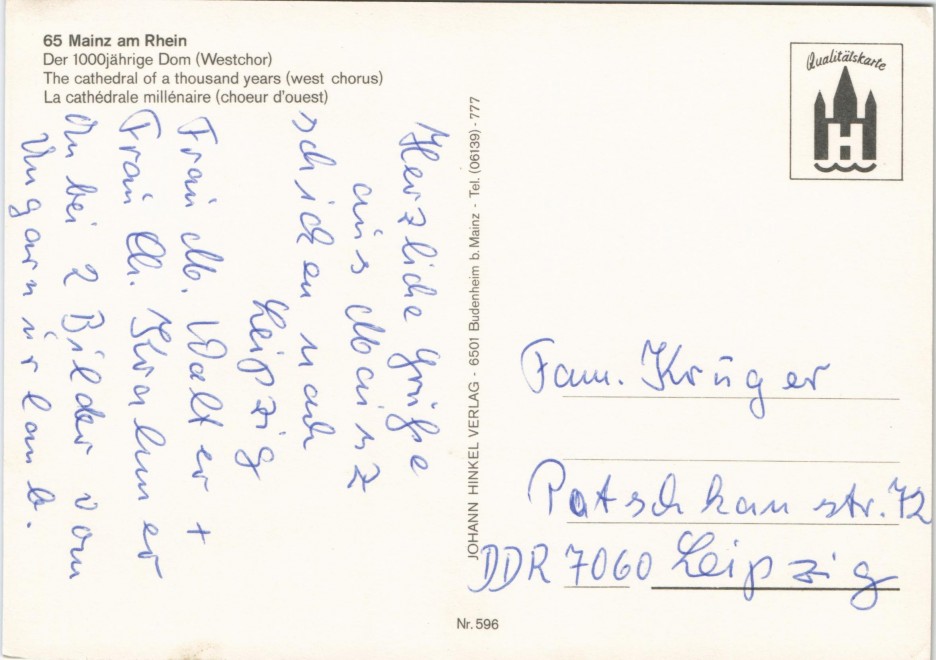 65 Mainz am Rhein
Der 1000jährige Dom (Westchor)
The cathedral of a thousand years (west chorus)
La cathédrale millénaire (choeur d'ouest)
Qualitätskarte
H
Herzliche Grüße
aus Mainz
schicken nach
Leipzig
Frau M. Walter +
Frau Ch.
An bei 2 Bilder vom
Ungarnurlaub.
JOHANN HINKEL VERLAG - 6501 Budenheim b. Mainz - Tel. (06139) - 777
Fam. Krüger
Patschkaustr. 72
DDR 7060 Leipzig
Nr. 596